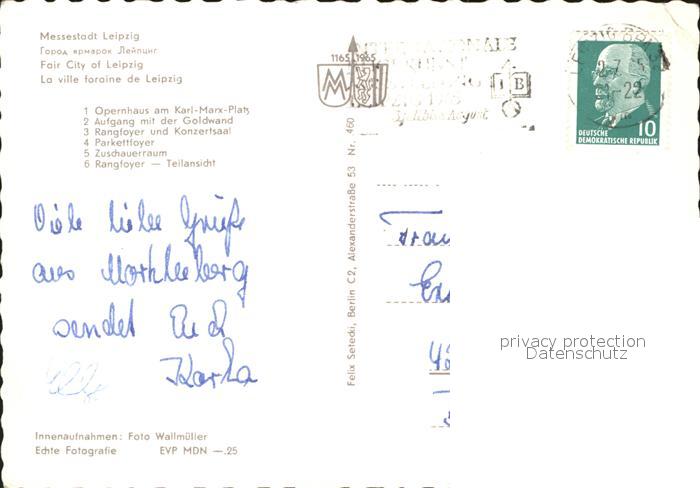 Messestadt Leipzig
Город ярмарок Лейпциг
Fair City of Leipzig
La ville foraine de Leipzig
1 Opernhaus am Karl-Marx-Platz
2 Aufgang mit der Goldwand
3 Rangfoyer und Konzertsaal
4 Parkettfoyer
5 Zuschauerraum
6 Rangfoyer — Teilansicht
Viele liebe Grüße
aus Markkleeberg
sendet Euch
Karla
Innenaufnahmen: Foto Wallmüller
Echte Fotografie EVP MDN —.25
Felix Setecki, Berlin C2, Alexanderstraße 53 Nr. 460
1165 1965
M
INTERNATIONALE
IB
DEUTSCHE
DEMOKRATISCHE REPUBLIK
10
privacy protection
Datenschutz